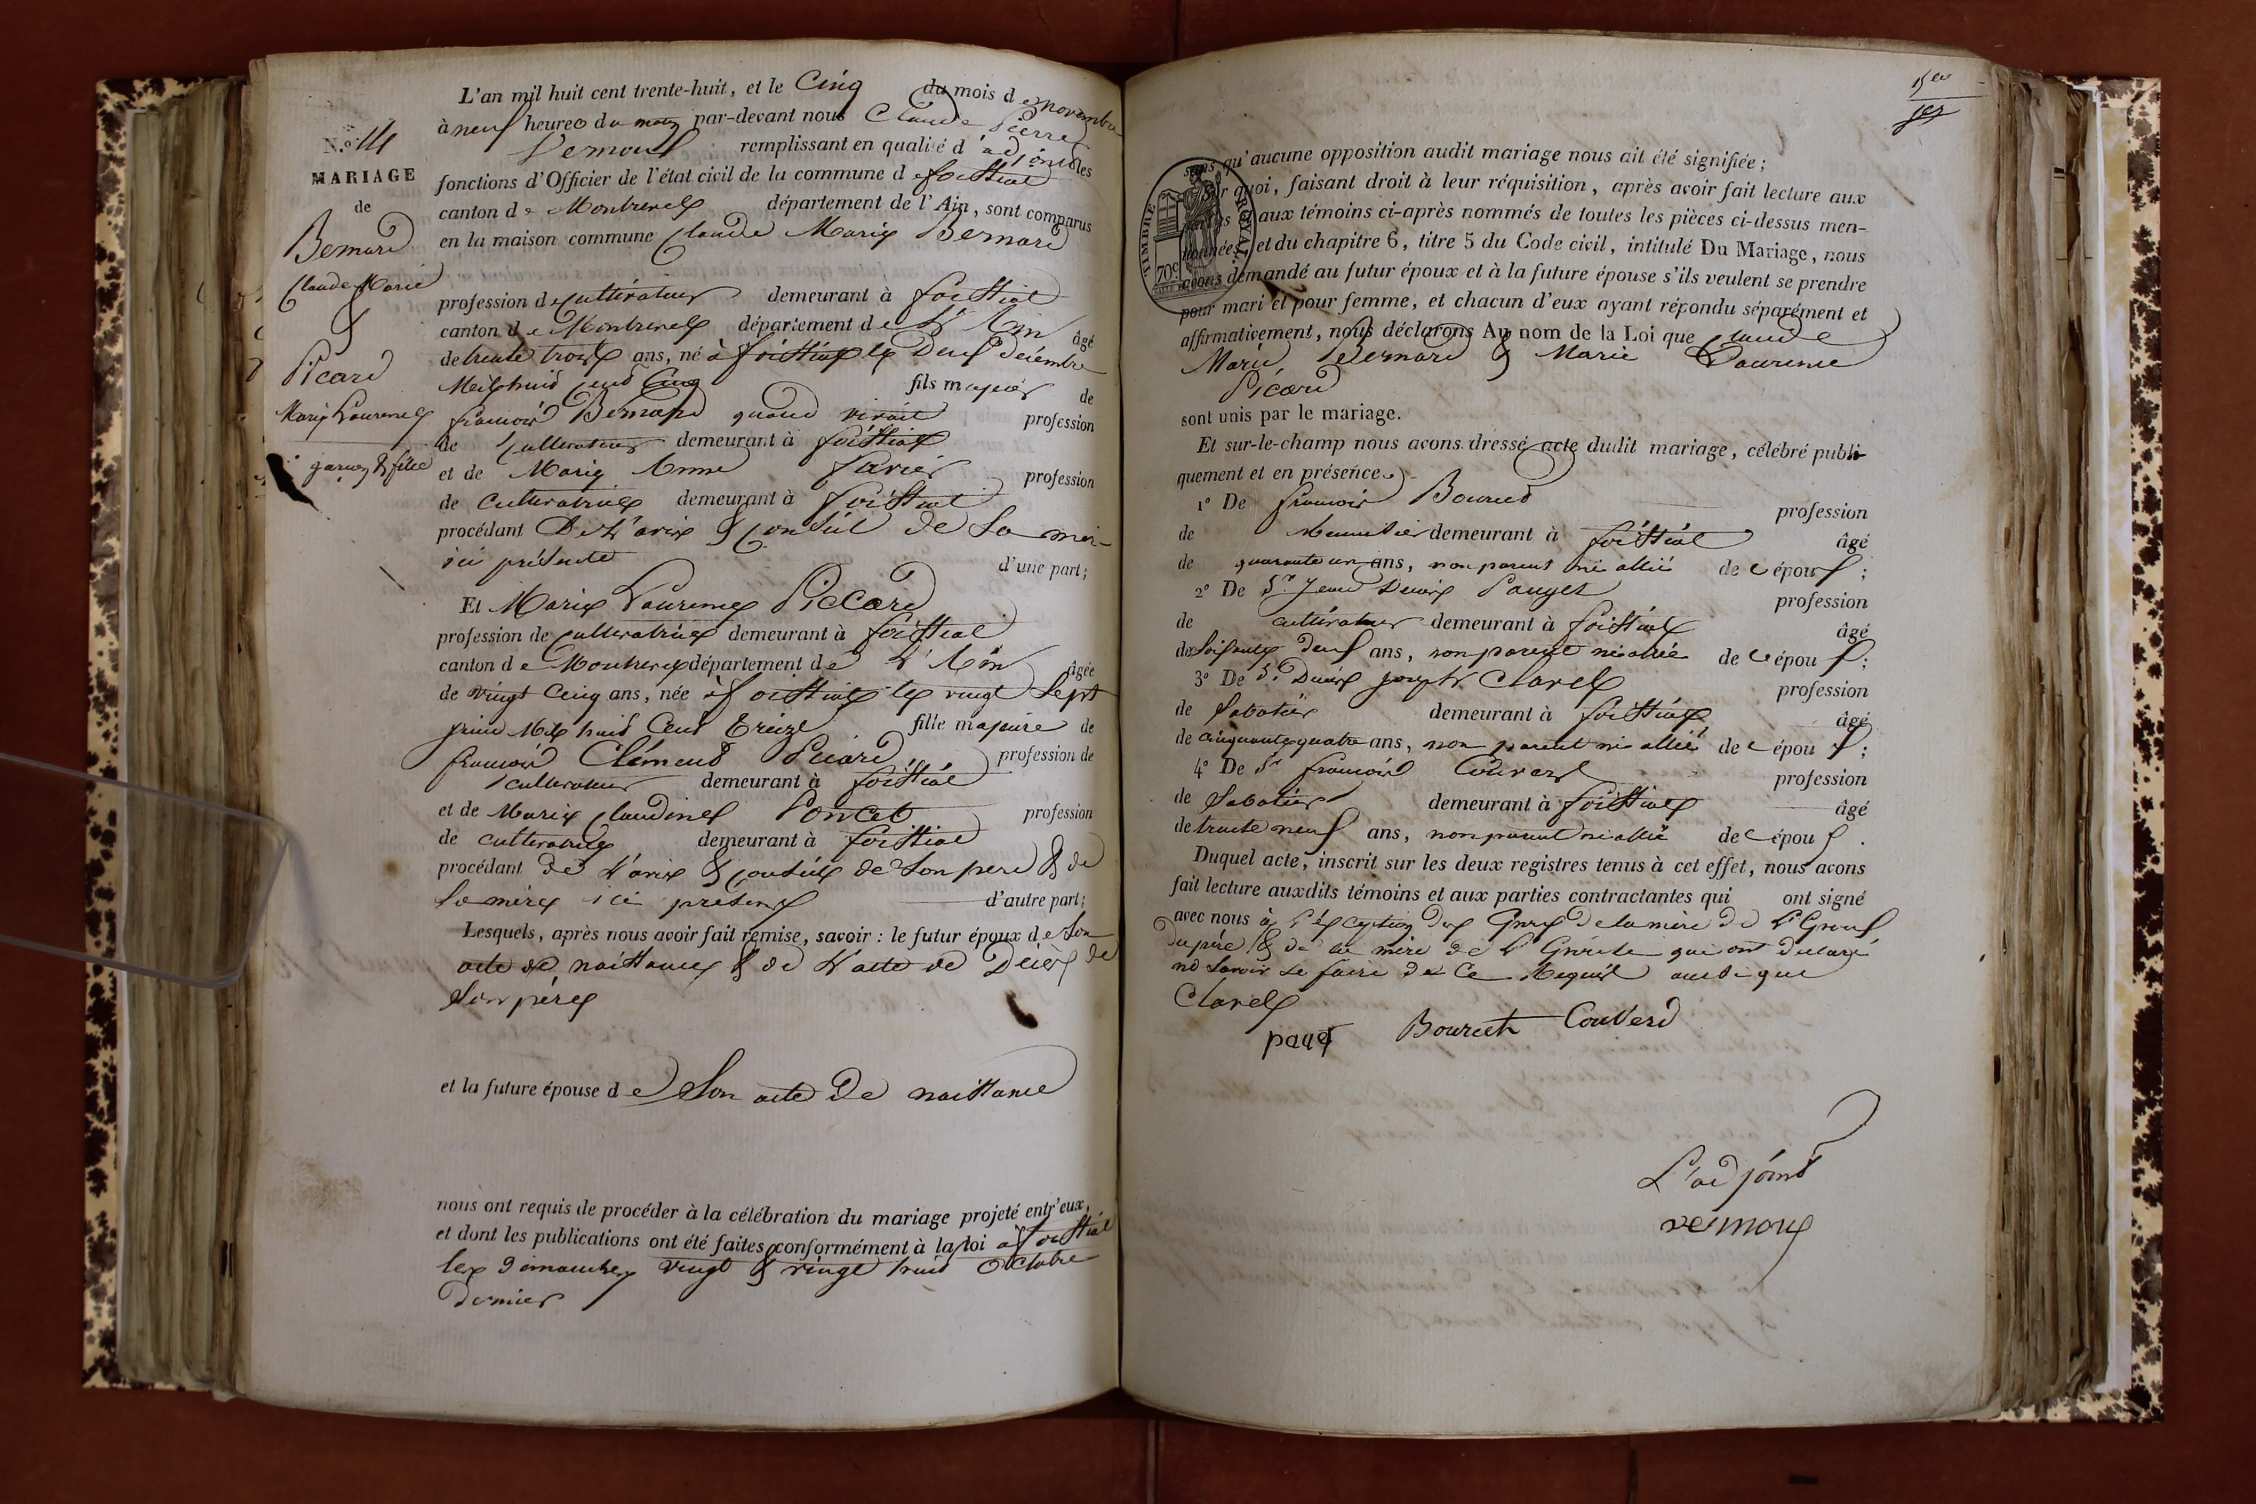 N.º 14
MARIAGE
de
Bernard
Claude Marie
&
Picard
Marie Laurence
garçon & fille
L'an mil huit cent trente-huit, et le Cinq du mois de novembre
à neuf heures du matin par-devant nous Claude Pierre
Vernoux remplissant en qualité d'adjoint les
fonctions d'Officier de l'état civil de la commune de foissiat
canton de Montrevel département de l'Ain, sont comparus
en la maison commune Claude Marie Bernard
profession de Cultivateur demeurant à foissiat
canton de Montrevel département de L'Ain âgé
de trente trois ans, né à foissiat le Deux Décembre
Mil huit Cent Cinq fils majeur de
françois Bernard quand vivait profession
de Cultivateur demeurant à foissiat
et de Marie Anne profession
de Cultivatrice demeurant à foissiat
procédant De L'avis & Conseil de Sa mère
ici présente d'une part;
Et Marie Laurence Piccard
profession de Cultivatrice demeurant à foissiat
canton de Montrevel département de L'Ain âgée
de vingt Cinq ans, née à foissiat le vingt Sept
juin Mil huit Cent Treize fille majeure de
françois Clément Picard profession de
Cultivateur demeurant à foissiat
et de Marie Claudine Poncet profession
de Cultivatrice demeurant à foissiat
procédant de L'avis & Conseil de Son père & de
Sa mère ici présens d'autre part;
Lesquels, après nous avoir fait remise, savoir : le futur époux de Son
acte de naissance & de L'acte de Décès de
Son père
et la future épouse de Son acte de naissance
nous ont requis de procéder à la célébration du mariage projeté entr'eux,
et dont les publications ont été faites conformément à la loi à foissiat
les Dimanches vingt & vingt huit Octobre
dernier
TIMBRE ROYAL
70c
sans qu'aucune opposition audit mariage nous ait été signifiée;
Sur quoi, faisant droit à leur réquisition, après avoir fait lecture aux
parties et aux témoins ci-après nommés de toutes les pièces ci-dessus men-
tionnées, et du chapitre 6, titre 5 du Code civil, intitulé Du Mariage, nous
avons demandé au futur époux et à la future épouse s'ils veulent se prendre
pour mari et pour femme, et chacun d'eux ayant répondu séparément et
affirmativement, nous déclarons Au nom de la Loi que Claude
Marie Bernard & Marie Laurence
Picard
sont unis par le mariage.
Et sur-le-champ nous avons dressé acte dudit mariage, célébré publi-
quement et en présence
1º De françois Bourcet profession
de demeurant à foissiat âgé
de quarante un ans, non parent ni allié de l'époux;
2º De Sr. Jean Denis Pauget profession
de cultivateur demeurant à foissiat âgé
de Soixante deux ans, non parent ni allié de l'époux;
3º De Sr. Denis joseph Clavel profession
de Sabotier demeurant à foissiat âgé
de cinquante quatre ans, non parent ni allié de l'époux;
4º De Sr françois profession
de Sabotier demeurant à foissiat âgé
de trente neuf ans, non parent ni allié de l'époux.
Duquel acte, inscrit sur les deux registres tenus à cet effet, nous avons
fait lecture auxdits témoins et aux parties contractantes qui ont signé
avec nous à L'exception des de la mère de L'Epoux
du père & de la mère de L'Epouse qui ont déclaré
ne Savoir le faire de Ce Requis ainsi que
Clavel
Bourcet Couverd
L'adjoint
vernoux